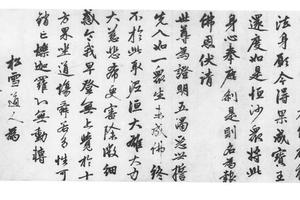 法身願今得果成寶王
還度如是恒沙衆將此
身心奉塵刹是則名為報
佛恩伏請
世尊為證明五濁惡世誓
先入如一衆生未成佛終
不於此取泥洹大雄大力
大慈悲希更審除微細
惑令我早登無上覺於十
方界坐道場舜若多性可
銷亡爍迦羅心無動轉
松雪道人為